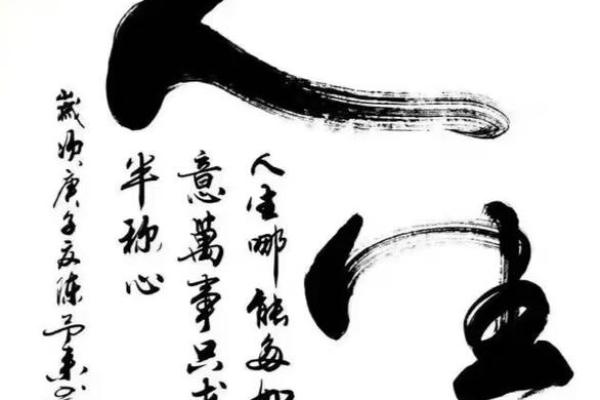 人
生
人生哪能多如
意萬事只求
半称心
歲次庚子夏陳